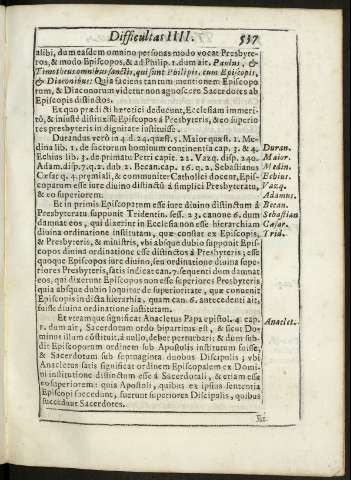 Difficultas IIII. 537
alibi, dum easdem omnino personas modo vocat Presbyte-
ros, & modo Episcopos, & ad Philip. 1. dum ait. Paulus, &
Timotheus omnibus sanctis, qui sunt Philipis, cum Episcopis,
& Diaconibus: Quia faciens tantum mentionem Episcopo
rum, & Diaconorum videtur non agnoscere Sacerdotes ab
Episcopis distinctos.
Ex quo prædicti hæretici deducunt, Ecclesiam immeri-
tò, & iniustè distinxisse Episcopos á Presbyteris, & eo superio
res presbyteris in dignitate instituisse.
Durandus verò in 4. d. 24. quæst. 5. Maior quæst. 1. Me-
dina lib. 1. de sacrorum hominum continentia cap. 3. & 4.
Echius lib. 3. de primatu Petri capit. 22. Vazq. disp. 240.
Adam. disp. 7. q. 2. dub. 2. Becan. cap. 16. q. 2. Sebastianus
Cæsar q. 4. præmiali, & communiter Catholici docent, Epis-
copatum esse iure diuino distinctū á simplici Presbyteratu,
& eo superiorem.
Duran.
Maior.
Medin.
Echius.
Vazq.
Adamus.
Becan.
Sebastian
Cæsar.
Trid.
Et in primis Episcopatum esse iure diuino distinctum á
Presbyteratu supponit Tridentin. sess. 23. canone 6. dum
damnat eos, qui dixerint in Ecclesia non esse hierarchiam
diuina ordinatione institutam, quæ constet ex Episcopis,
& Presbyteris, & ministris, vbi absque dubio supponit Epis-
copos diuina ordinatione esse distinctos á Presbyteris; esse
quoque Episcopos iure diuino, seu ordinatione diuina supe-
riores Presbyteris, satis indicat can. 7. sequenti dum damnat
eos, qui dixerint Episcopos non esse superiores Presbyteris
quia absque dubio loquitur de superioritate, quæ conuenit
Episcopis in dicta hierarchia, quam can. 6. antecedenti ait,
fuisse diuina ordinatione institutam.
Et vtramque significat Anacletus Papa epistol. 4. cap.
1. dum air, Sacerdotum ordo bipartitus est, & sicut Do-
minus illum cōstituit, á nullo, debet perturbari: & dum sub-
dit Episcoporum ordinem sub Apostolis institutum fuisse,
& Sacerdotum sub septuaginta duobus Discipulis; vbi
Anacletus satis significat ordinem Episcopalem ex Do-
mini institutione distinctum esse á Sacerdotali, & etiam esse
eo superiorem: quia Apostoli, quibus ex ipsius sententia
Episcopi succedunt, fuerunt superiores Discipulis, quibus
succedunt Sacerdotes.
Anaclet.